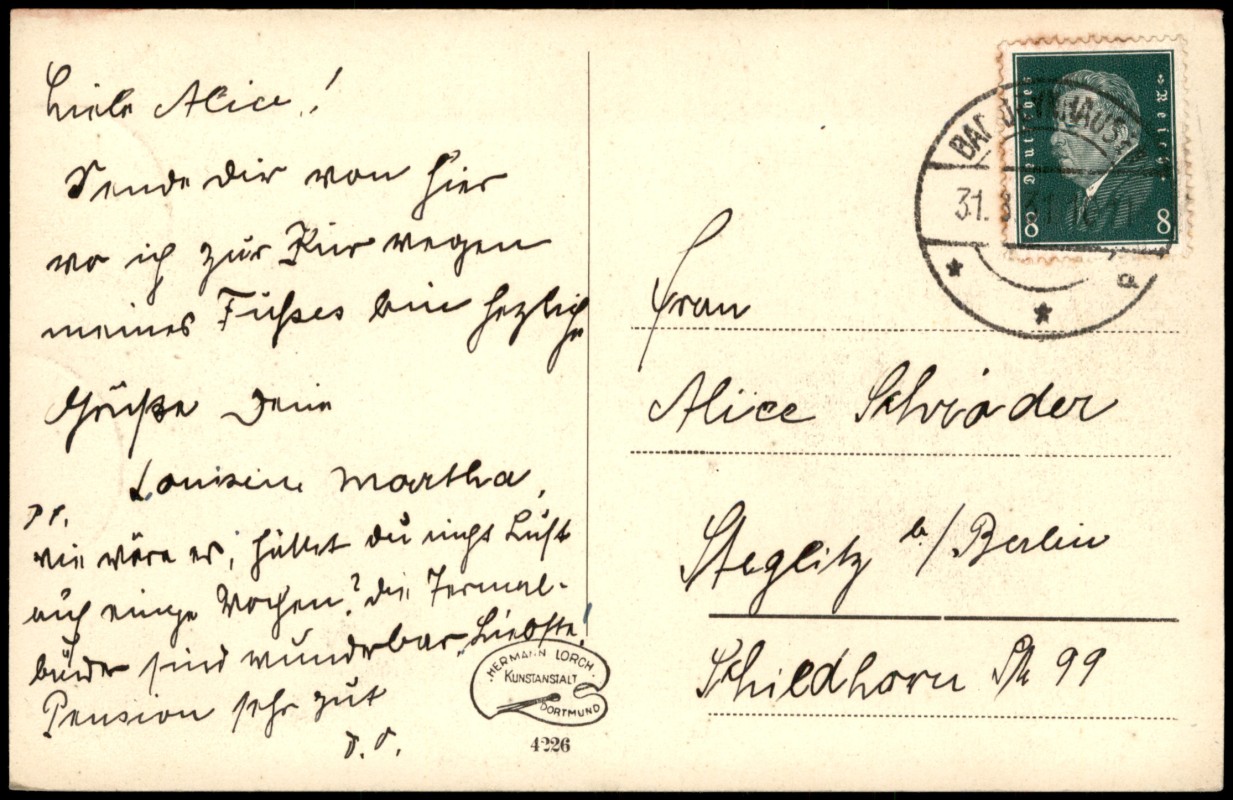 Liebe Alice!
Sende dir von hier
wo ich zur Kur wegen
meines Fußes bin herzliche
Grüße Deine
Martha,
ps.
wie wäre es, hättest du nicht Luft
auch einige Wochen? die Termal-
bäder sind wunderbar, Liebste!
Pension sehr gut
D. O.
HERMANN LORCH
KUNSTANSTALT
DORTMUND
4226
Deutsches Reich
8 8
BAD OEYNHAUSEN
31. 8. 31.
Frau
Alice Schröder
Steglitz b/Berlin
Schildhorn Str 99